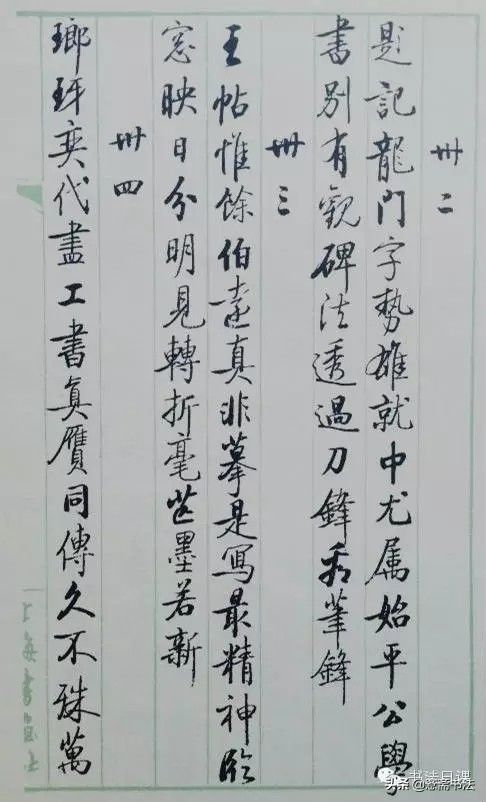 卅二
題記龍門字勢雄就中尤属始平公學
書別有觀碑法透過刀鋒看筆鋒
卅三
王帖惟餘伯遠真非摹是寫最精神臨
窓映日分明見轉折毫芒墨若新
卅四
瑯玡奕代盡工書真贋同傳久不殊萬
书法日课